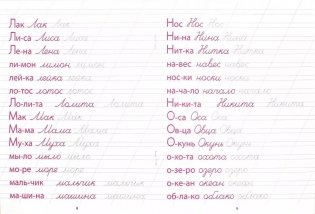 Лак Лак Лак
Ли-са Лиса Лиса
Ле-на Лена Лена
ли-мон лимон лимон
лей-ка лейка лейка
ло-тос лотос лотос
Ло-ли-та Лолита Лолита
Мак Мак Мак
Ма-ма Мама Мама
Му-ха Муха Муха
мы-ло мыло мыло
мо-ре море море
маль-чик мальчик мальчик
ма-ши-на машина машина
Нос Нос Нос
Ни-на Нина Нина
Нит-ка Нитка Нитка
на-вес навес навес
нос-ки носки носки
на-ча-ло начало начало
Ни-ки-та Никита Никита
О-са Оса Оса
Ов-ца Овца Овца
О-кунь Окунь Окунь
о-хо-та охота охота
о-зе-ро озеро озеро
о-ке-ан океан океан
об-ла-ко облако облако